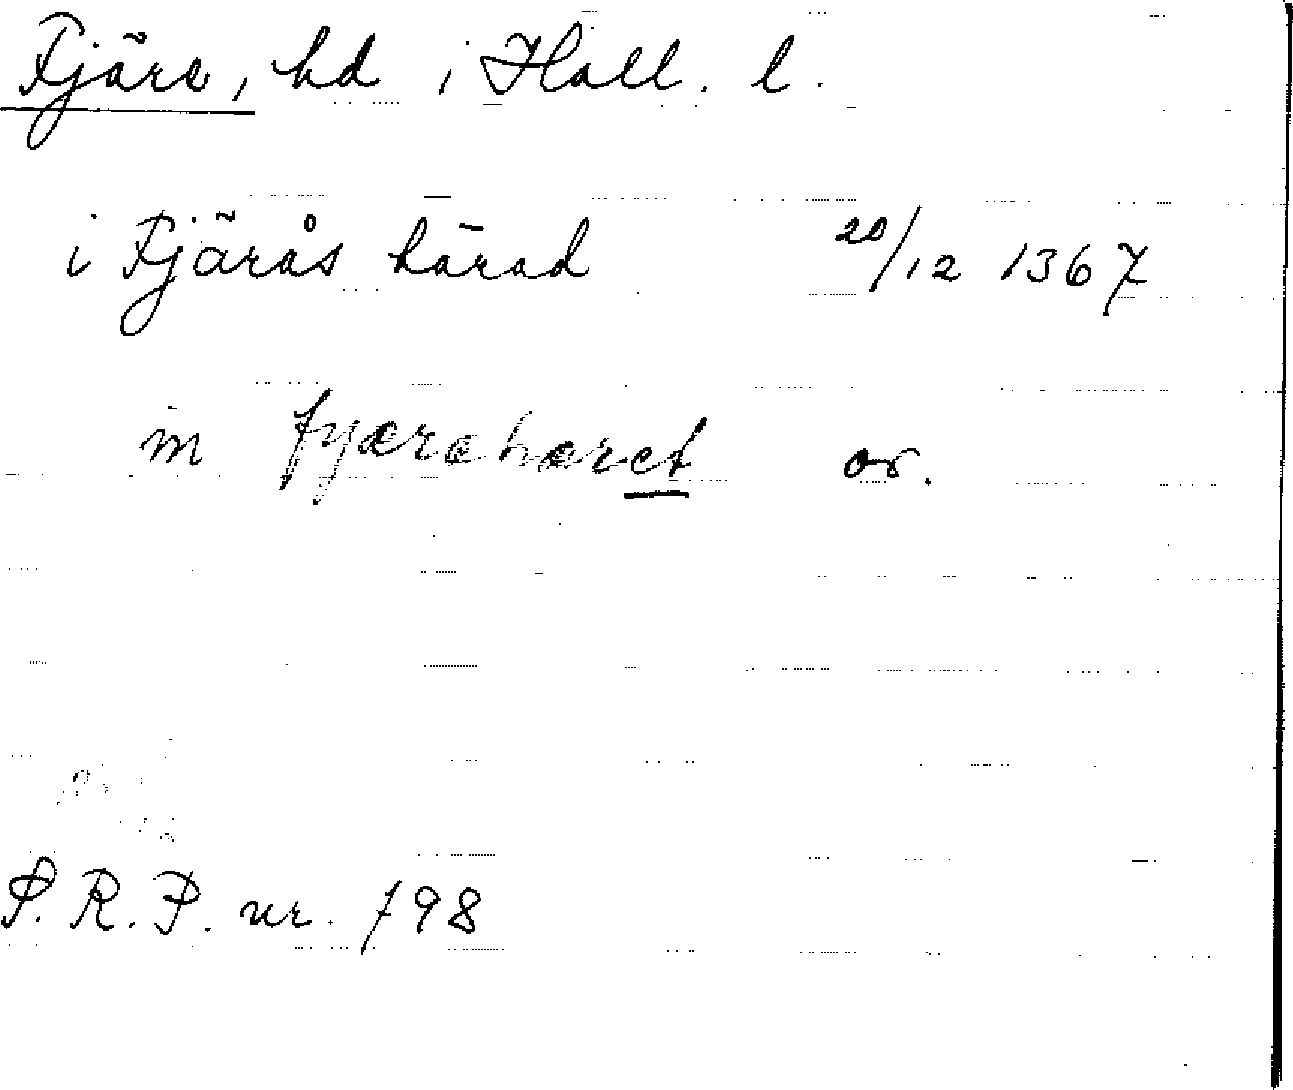 Fjäre, hd i Hall. l.
i Fjärås härad 20/12 1367
in fyæræhæret or.
S. R. P. nr. 798